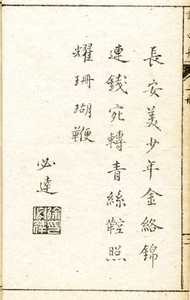 長安美少年金絡錦
連錢宛轉青絲鞚照
耀珊瑚鞭
必達